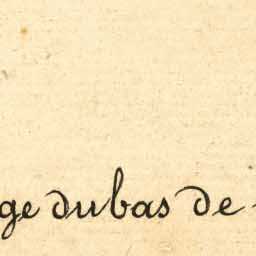 ge du bas de